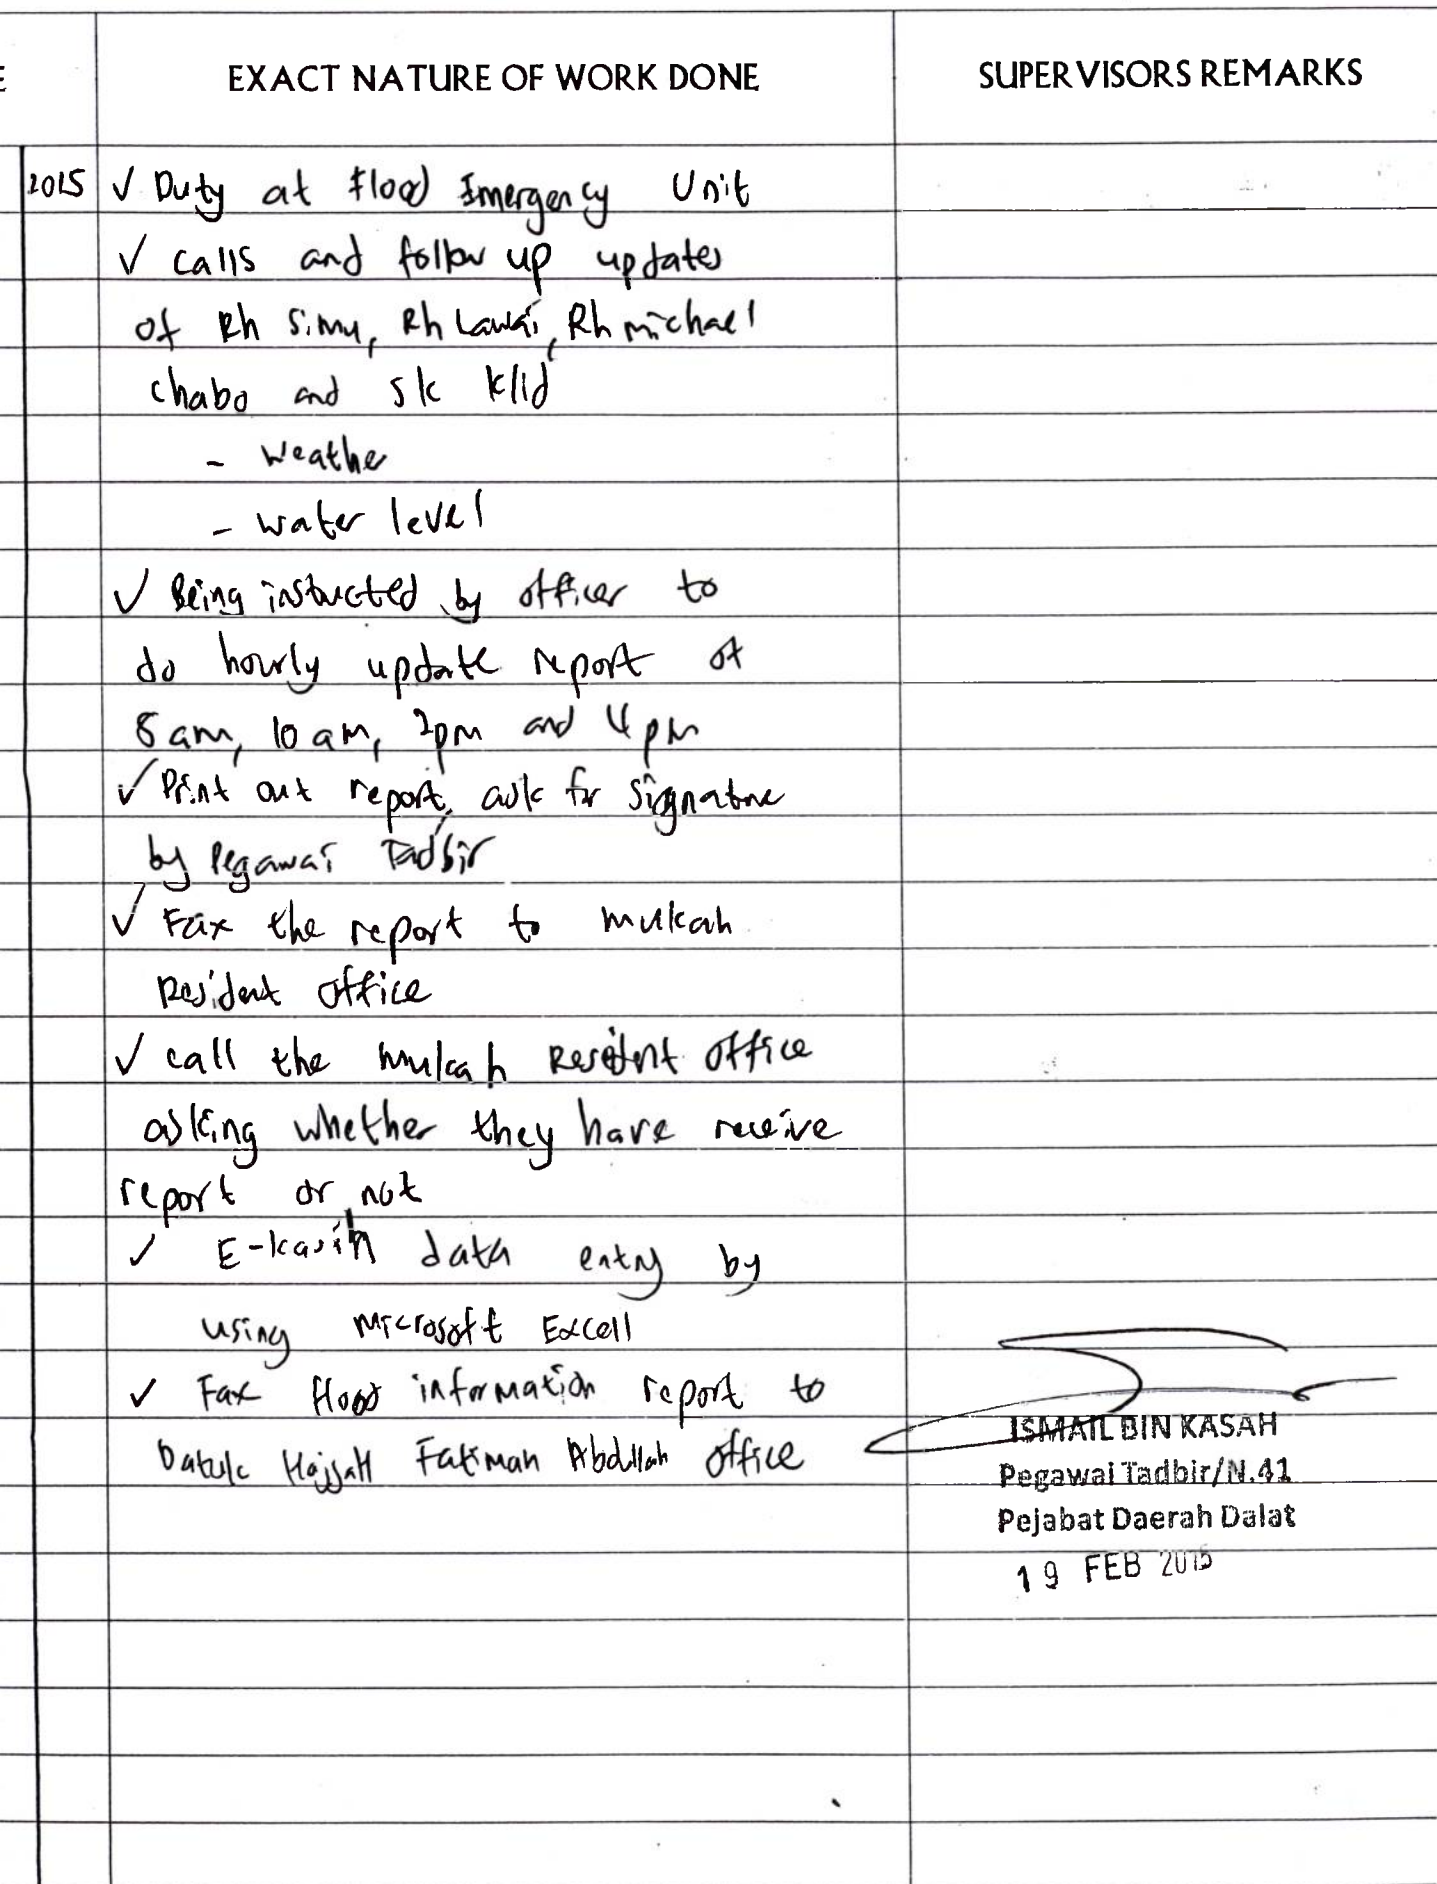 E
EXACT NATURE OF WORK DONE
SUPERVISORS REMARKS
2015
✓ Duty at Flood Emergency Unit
✓ calls and follow up updates
of Rh Simu, Rh Lawai, Rh michael
chabo and sk klid
- Weather
- water level
✓ Being instructed by officer to
do hourly update report at
8 am, 10 am, 2pm and 4 pm
✓ Print out report, ask for signature
by Pegawai Tadbir
✓ Fax the report to mukah
Resident office
✓ call the mukah Resident office
asking whether they have receive
report or not
✓ E-kasih data entry by
using Microsoft Excell
✓ Fax flood information report to
Datuk Hajjah Fatimah Abdullah office
ISMAIL BIN KASAH
Pegawai Tadbir/N.41
Pejabat Daerah Dalat
19 FEB 2015